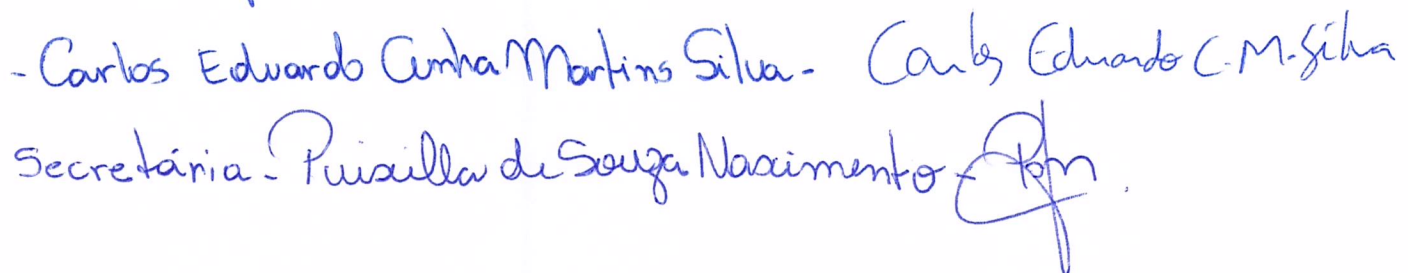 - Carlos Eduardo Cunha Martins Silva - Carlos Eduardo C. M. Silva
Secretária - Priscilla de Souza Nascimento -